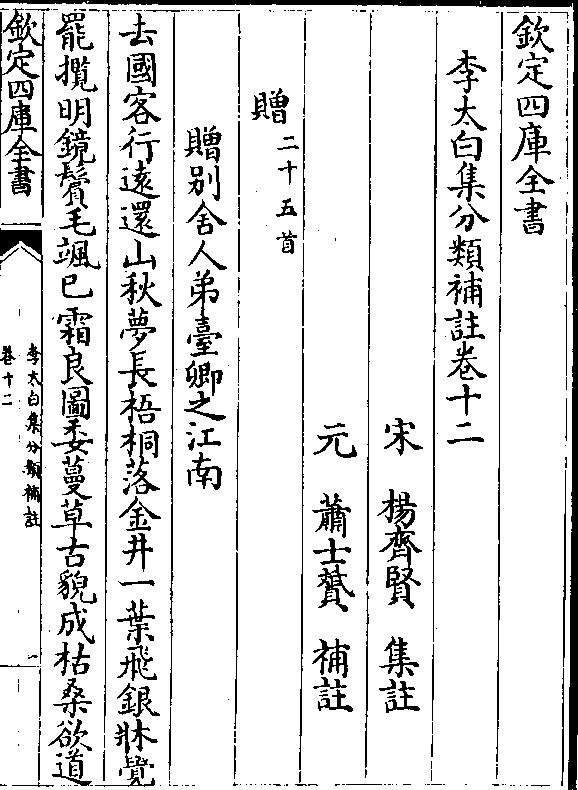 欽定四庫全書
李太白集分類補註卷十二
宋 楊齊賢 集註
元 蕭士贇 補註
贈二十五首
贈别舍人弟臺卿之江南
去國客行逺還山秋夢長梧桐落金井一葉飛銀牀覺
罷攬明鏡鬢毛颯已霜良圖委蔓草古貌成枯桑欲道
欽定四庫全書
李太白集分類補註
卷十二
一